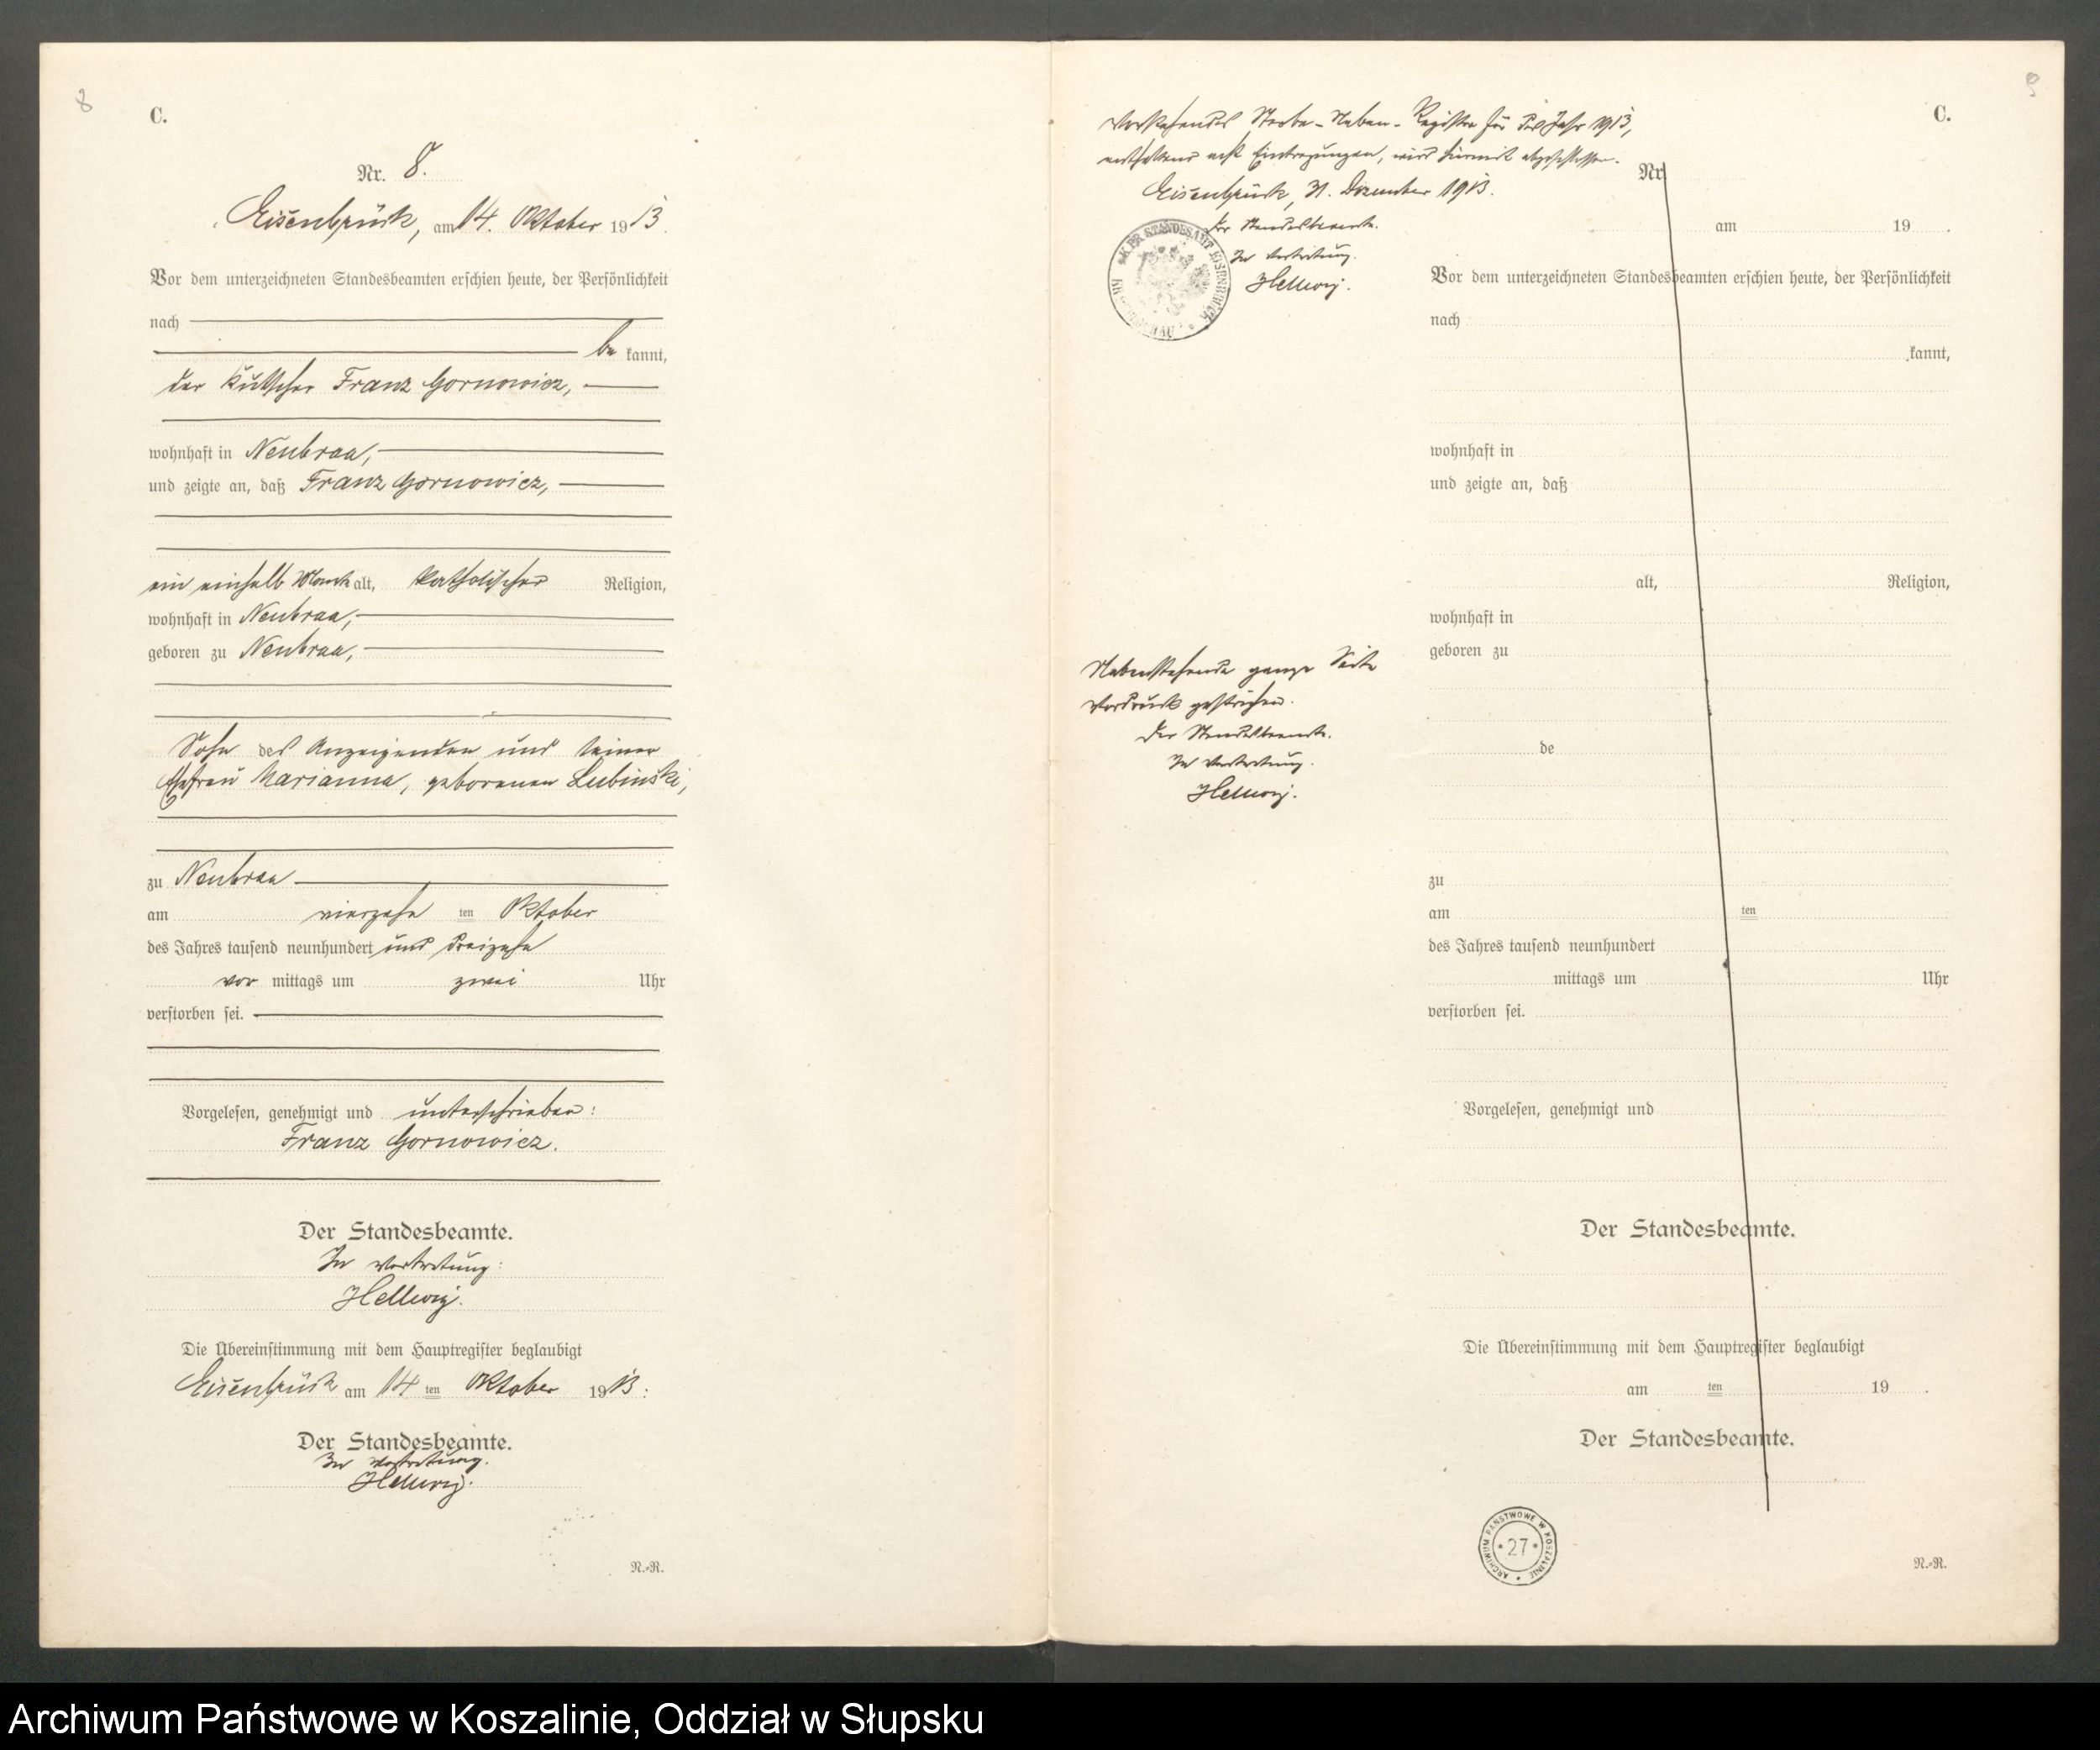 8
C.
Nr. 8.
Eisenbrück, am 14. Oktober 1913.
Vor dem unterzeichneten Standesbeamten erschien heute, der Persönlichkeit
nach
be kannt,
der Kutscher Franz Gornowicz,
wohnhaft in Neubraa,
und zeigte an, daß Franz Gornowicz,
ein einhalb Monat alt, katholischer Religion,
wohnhaft in Neubraa,
geboren zu Neubraa,
Sohn des Anzeigenden und seiner
Ehefrau Marianna, geborenen Lubinski,
zu Neubraa
am vierzehn ten Oktober
des Jahres tausend neunhundert und dreizehn
vor mittags um zwei Uhr
verstorben sei.
Vorgelesen, genehmigt und unterschrieben:
Franz Gornowicz.
Der Standesbeamte.
In Vertretung:
Hellwig.
Die Übereinstimmung mit dem Hauptregister beglaubigt
Eisenbrück am 14 ten Oktober 1913.
Der Standesbeamte.
In Vertretung.
Hellwig.
N.-R.
9
C.
Vorstehendes Sterbe-Neben-Register für das Jahr 1913,
enthaltend acht Eintragungen, wird hiermit abgeschlossen.
Eisenbrück, 31. Dezember 1913.
Der Standesbeamte.
In Vertretung.
Hellwig.
K. PR. STANDESAMT EISENBRÜCK
Nr.
am 19 .
Vor dem unterzeichneten Standesbeamten erschien heute, der Persönlichkeit
nach
kannt,
wohnhaft in
und zeigte an, daß
alt, Religion,
wohnhaft in
geboren zu
Nebenstehende ganze Seite
Vordruck gestrichen.
Der Standesbeamte.
In Vertretung.
Hellwig.
de
zu
am ten
des Jahres tausend neunhundert
mittags um Uhr
verstorben sei.
Vorgelesen, genehmigt und
Der Standesbeamte.
Die Übereinstimmung mit dem Hauptregister beglaubigt
am ten 19 .
Der Standesbeamte.
ARCHIWUM PAŃSTWOWE W KOSZALINIE
* 27 *
N.-R.
Archiwum Państwowe w Koszalinie, Oddział w Słupsku